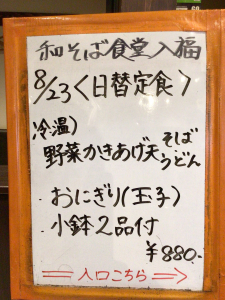 和そば食堂入福
8/23〈日替定食〉
冷温)
野菜かきあげ天そばうどん
・おにぎり(玉子)
・小鉢2品付
¥880.-
入口こちら